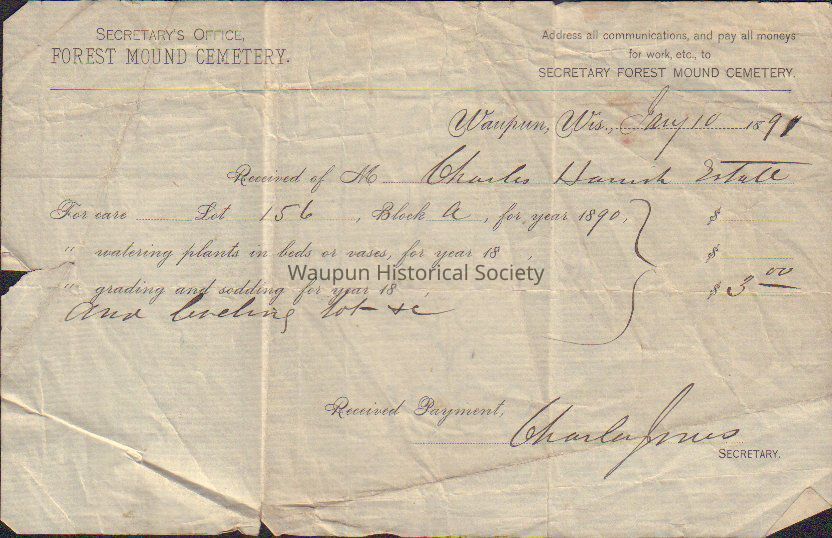 SECRETARY'S OFFICE,
FOREST MOUND CEMETERY.
Address all communications, and pay all moneys
for work, etc., to
SECRETARY FOREST MOUND CEMETERY.
Waupun, Wis., Jany 10 1891
Received of M Charles Estate
For care Lot 156, Block A, for year 1890, $
" watering plants in beds or vases, for year 18 , $
Waupun Historical Society
" grading and sodding for year 18 , $ 3 00
and leveling lot &c
Received Payment,
Charles Jones
SECRETARY.